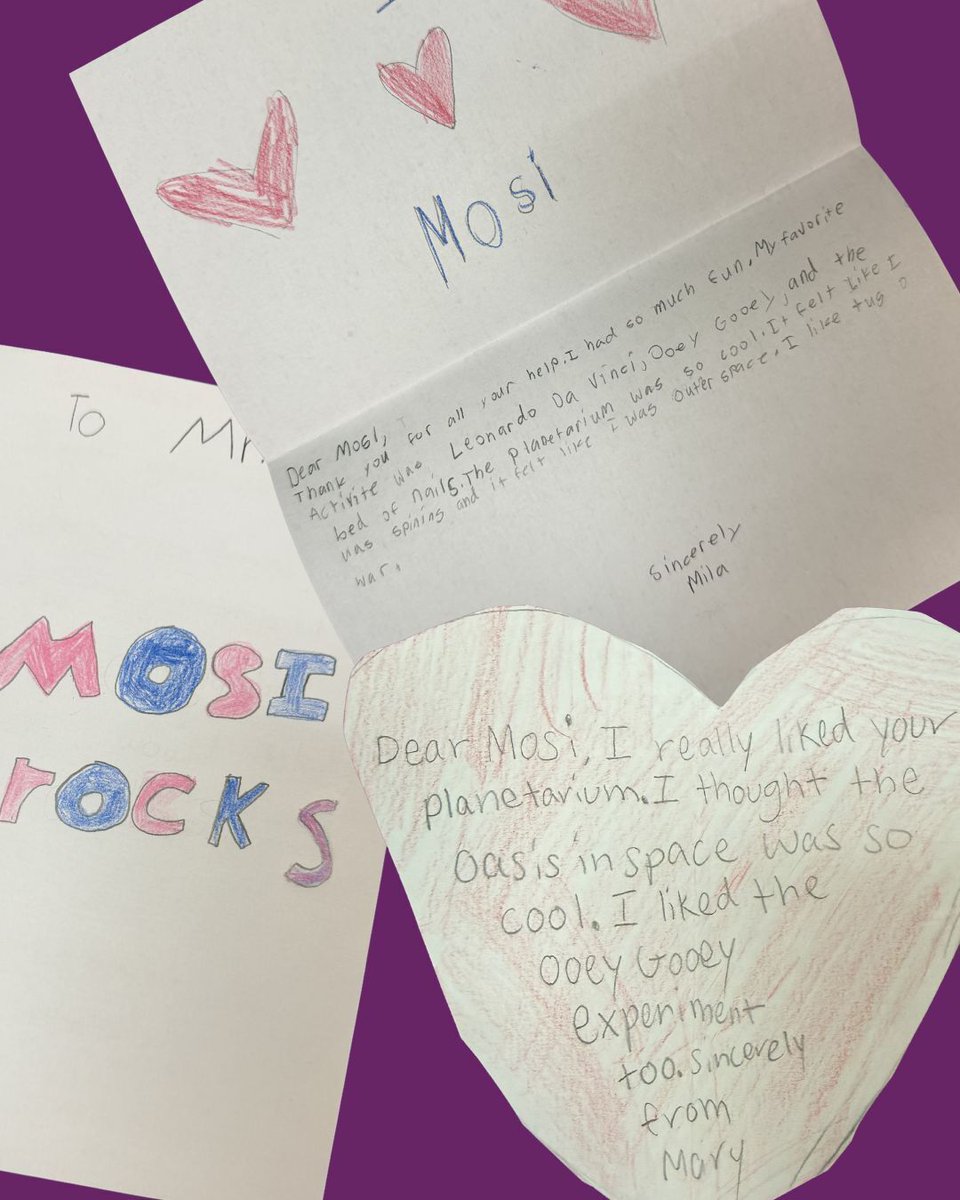 Mosi
Dear Mosi,
Thank you for all your help. I had so much fun. My favorite
Activite was Leonardo Da Vinci, Ooey Gooey, and the
bed of nails. The planetarium was so cool. It felt like I
was spining and it felt like I was outer space. I like tug o
war.
Sincerely
Mila
To Mr.
MOSI
rocks
Dear Mosi, I really liked your
planetarium. I thought the
Oasis in space was so
cool. I liked the
Ooey Gooey
experiment
too. Sincerely
from
Mary